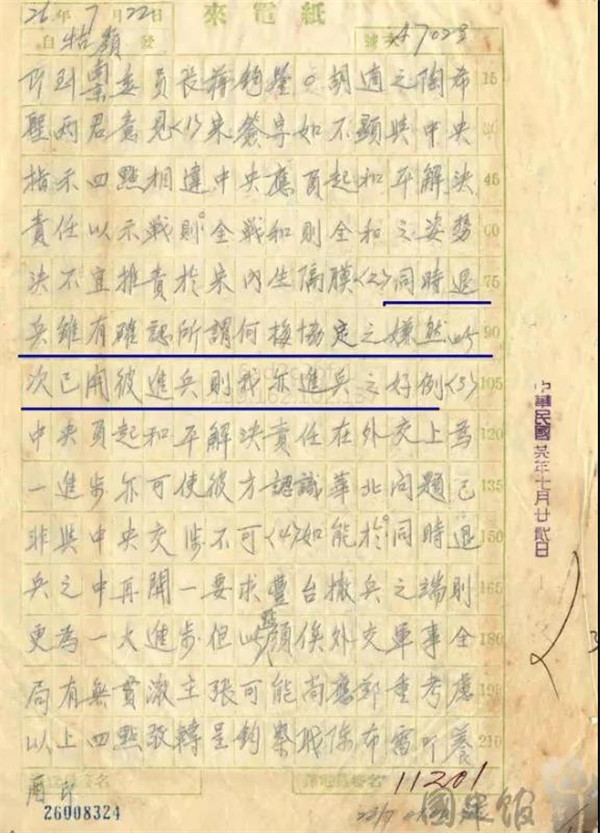 來電紙
26年7月22日
自牯嶺發
號次 4702
南京委員長蔣鈞鑒。胡適之陶希 15
聖兩君意見<1>宋簽字如不顯與中央 30
指示四點相違中央應負起和平解決 45
責任以示戰則全戰和則全和之姿勢 60
決不宜推責於宋內生隔膜<2>同時退 75
兵雖有確認所謂何梅協定之嫌然此 90
次已開彼進兵則我亦進兵之好例<3> 105
中央負起和平解決責任在外交上為 120
一進步亦可使彼方認識華北問題已 135
非與中央交涉不可<4>如能於同時退 150
兵之中再開一要求豐台撤兵之端則 165
更為一大進步但此點須俟外交軍事全 180
局有無貫澈主張可能尚應鄭重考慮 195
以上四點敬轉呈鈞察職陳布雷叩養 210
印
11201
26008324
中華民國廿六年七月廿貳日
國史館